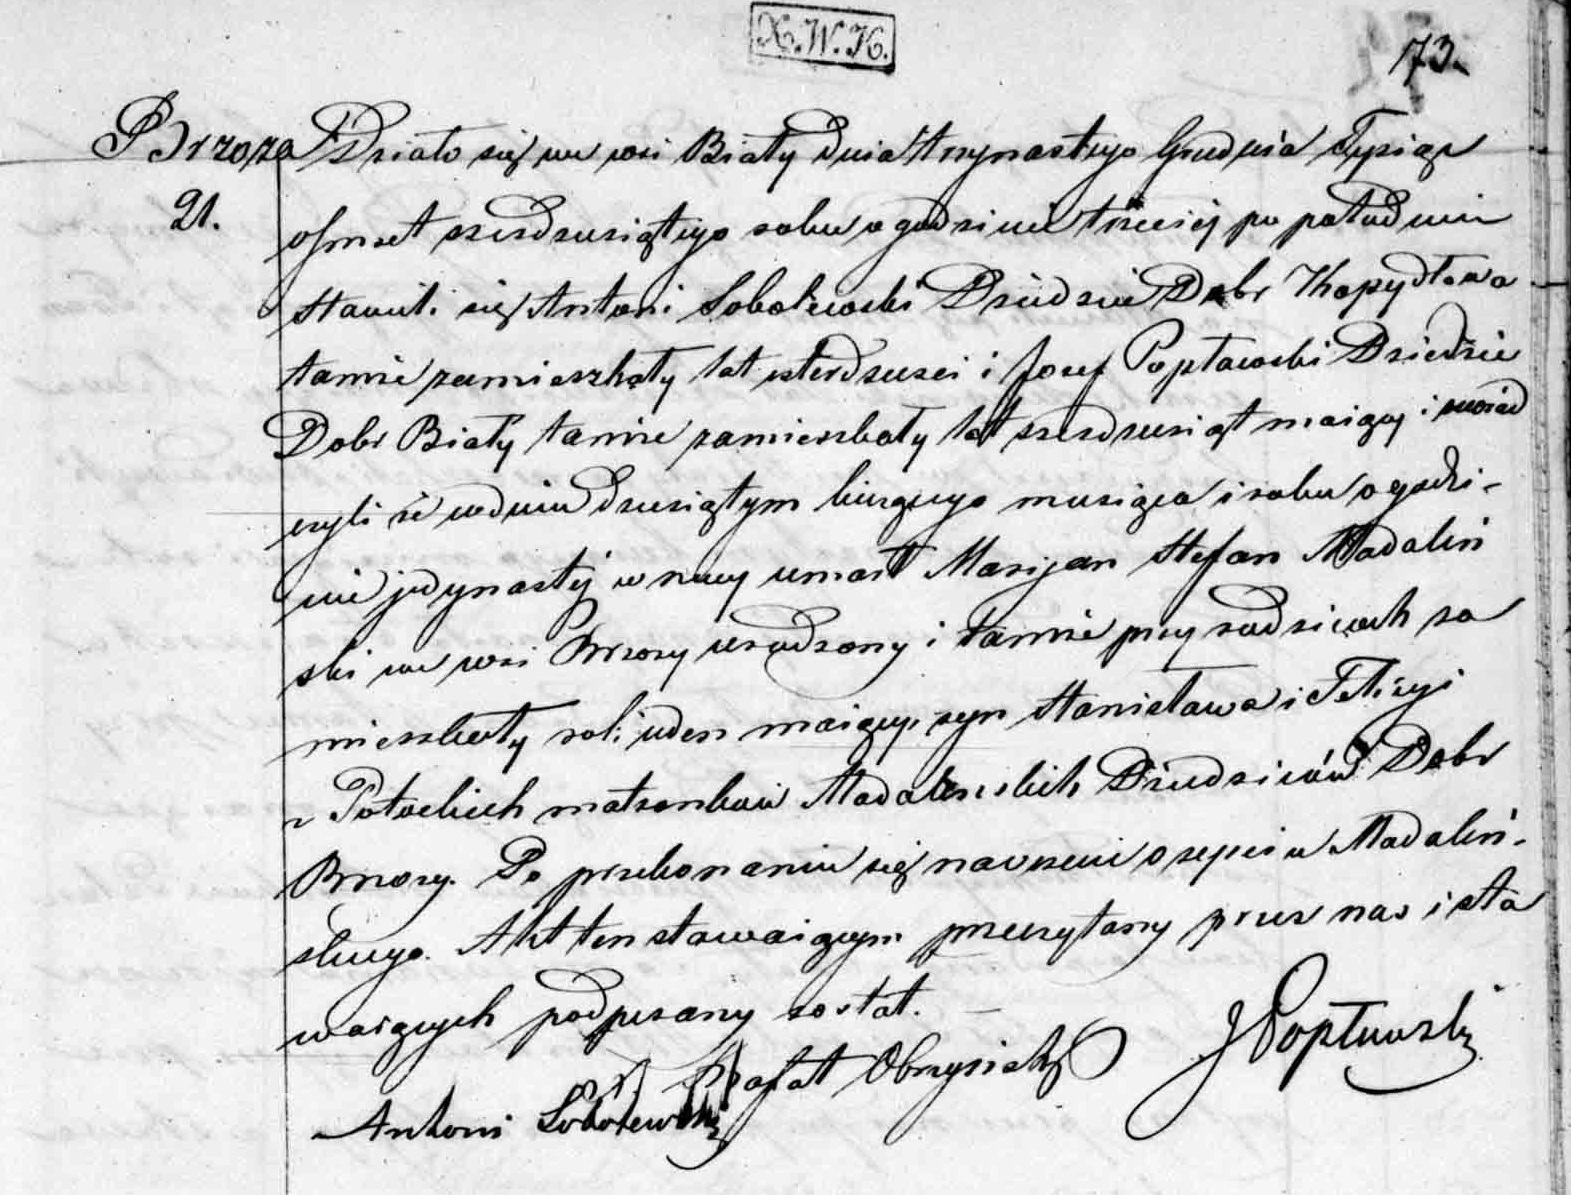 X.W.K.
73.
Brzoza Działo się we wsi Biały dnia trzynastego Grudnia Tysiąc
21. osmset szesdziesiątego roku o godzinie trzeciej po południu
stawili się Antoni Sobolewski Dziedzic Dobr Kopydłowa
tamże zamieszkały lat czterdzieści i Josef Popławski Dziedzic
Dobr Biały tamże zamieszkały lat szesdziesiąt maiący i oswiad
czyli iż w dniu dziesiątym bieżącego miesiąca i roku o godzi-
nie jedynastej w nocy umarł Maryjan Stefan Madaliń
ski we wsi Brzozy urodzony i tamże przy rodzicach za
mieszkały rok ieden maiący, syn Stanisława i Felicyi
z Potockich małżonków Madalinskich Dziedziców Dobr
Brzozy. Po przekonaniu się naocznie o zejściu Madaliń-
skiego. Akt ten stawaiącym przeczytany przez nas i sta
waiących podpisany został.
JPopławski
X Rafał
Antoni Sobolewski